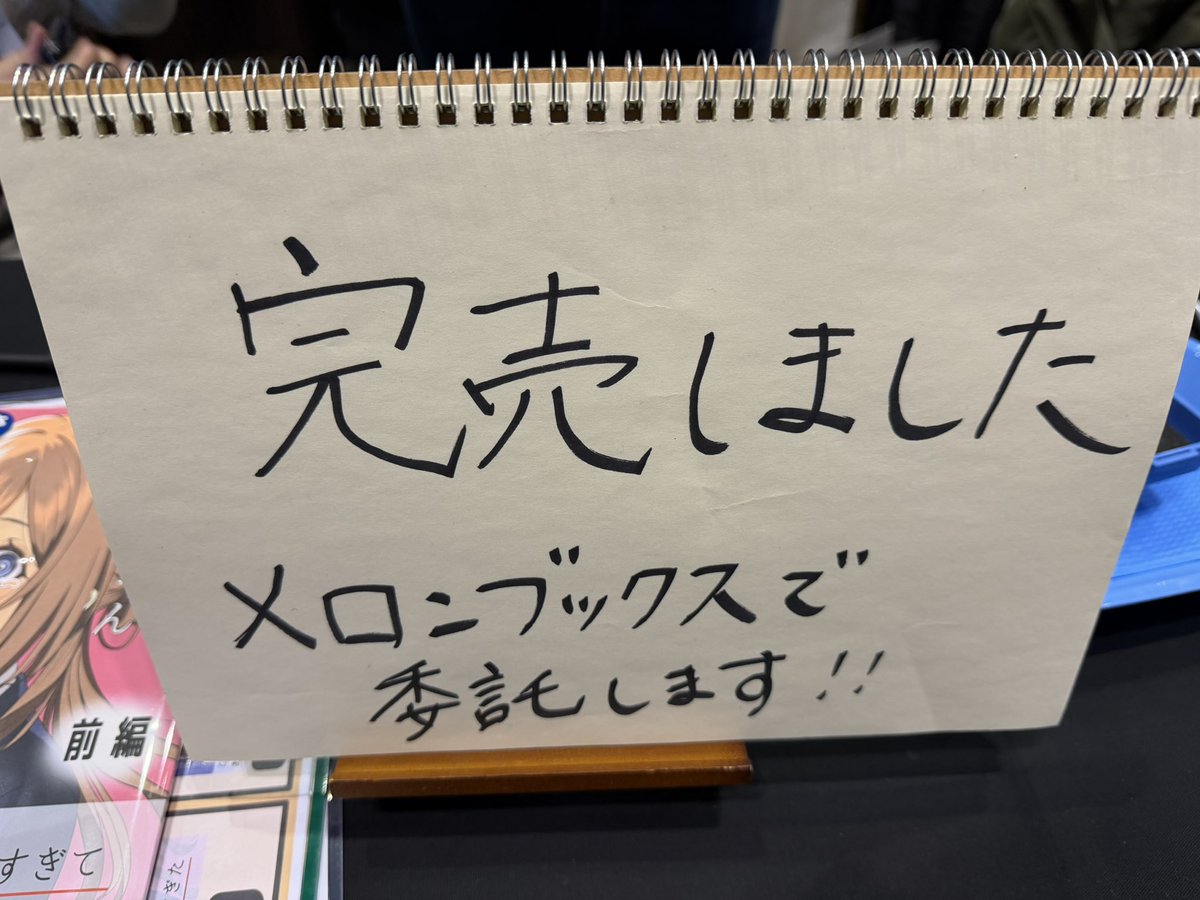 完売しました
メロンブックスで
委託します!!
ん
前編
すぎて
ぎた